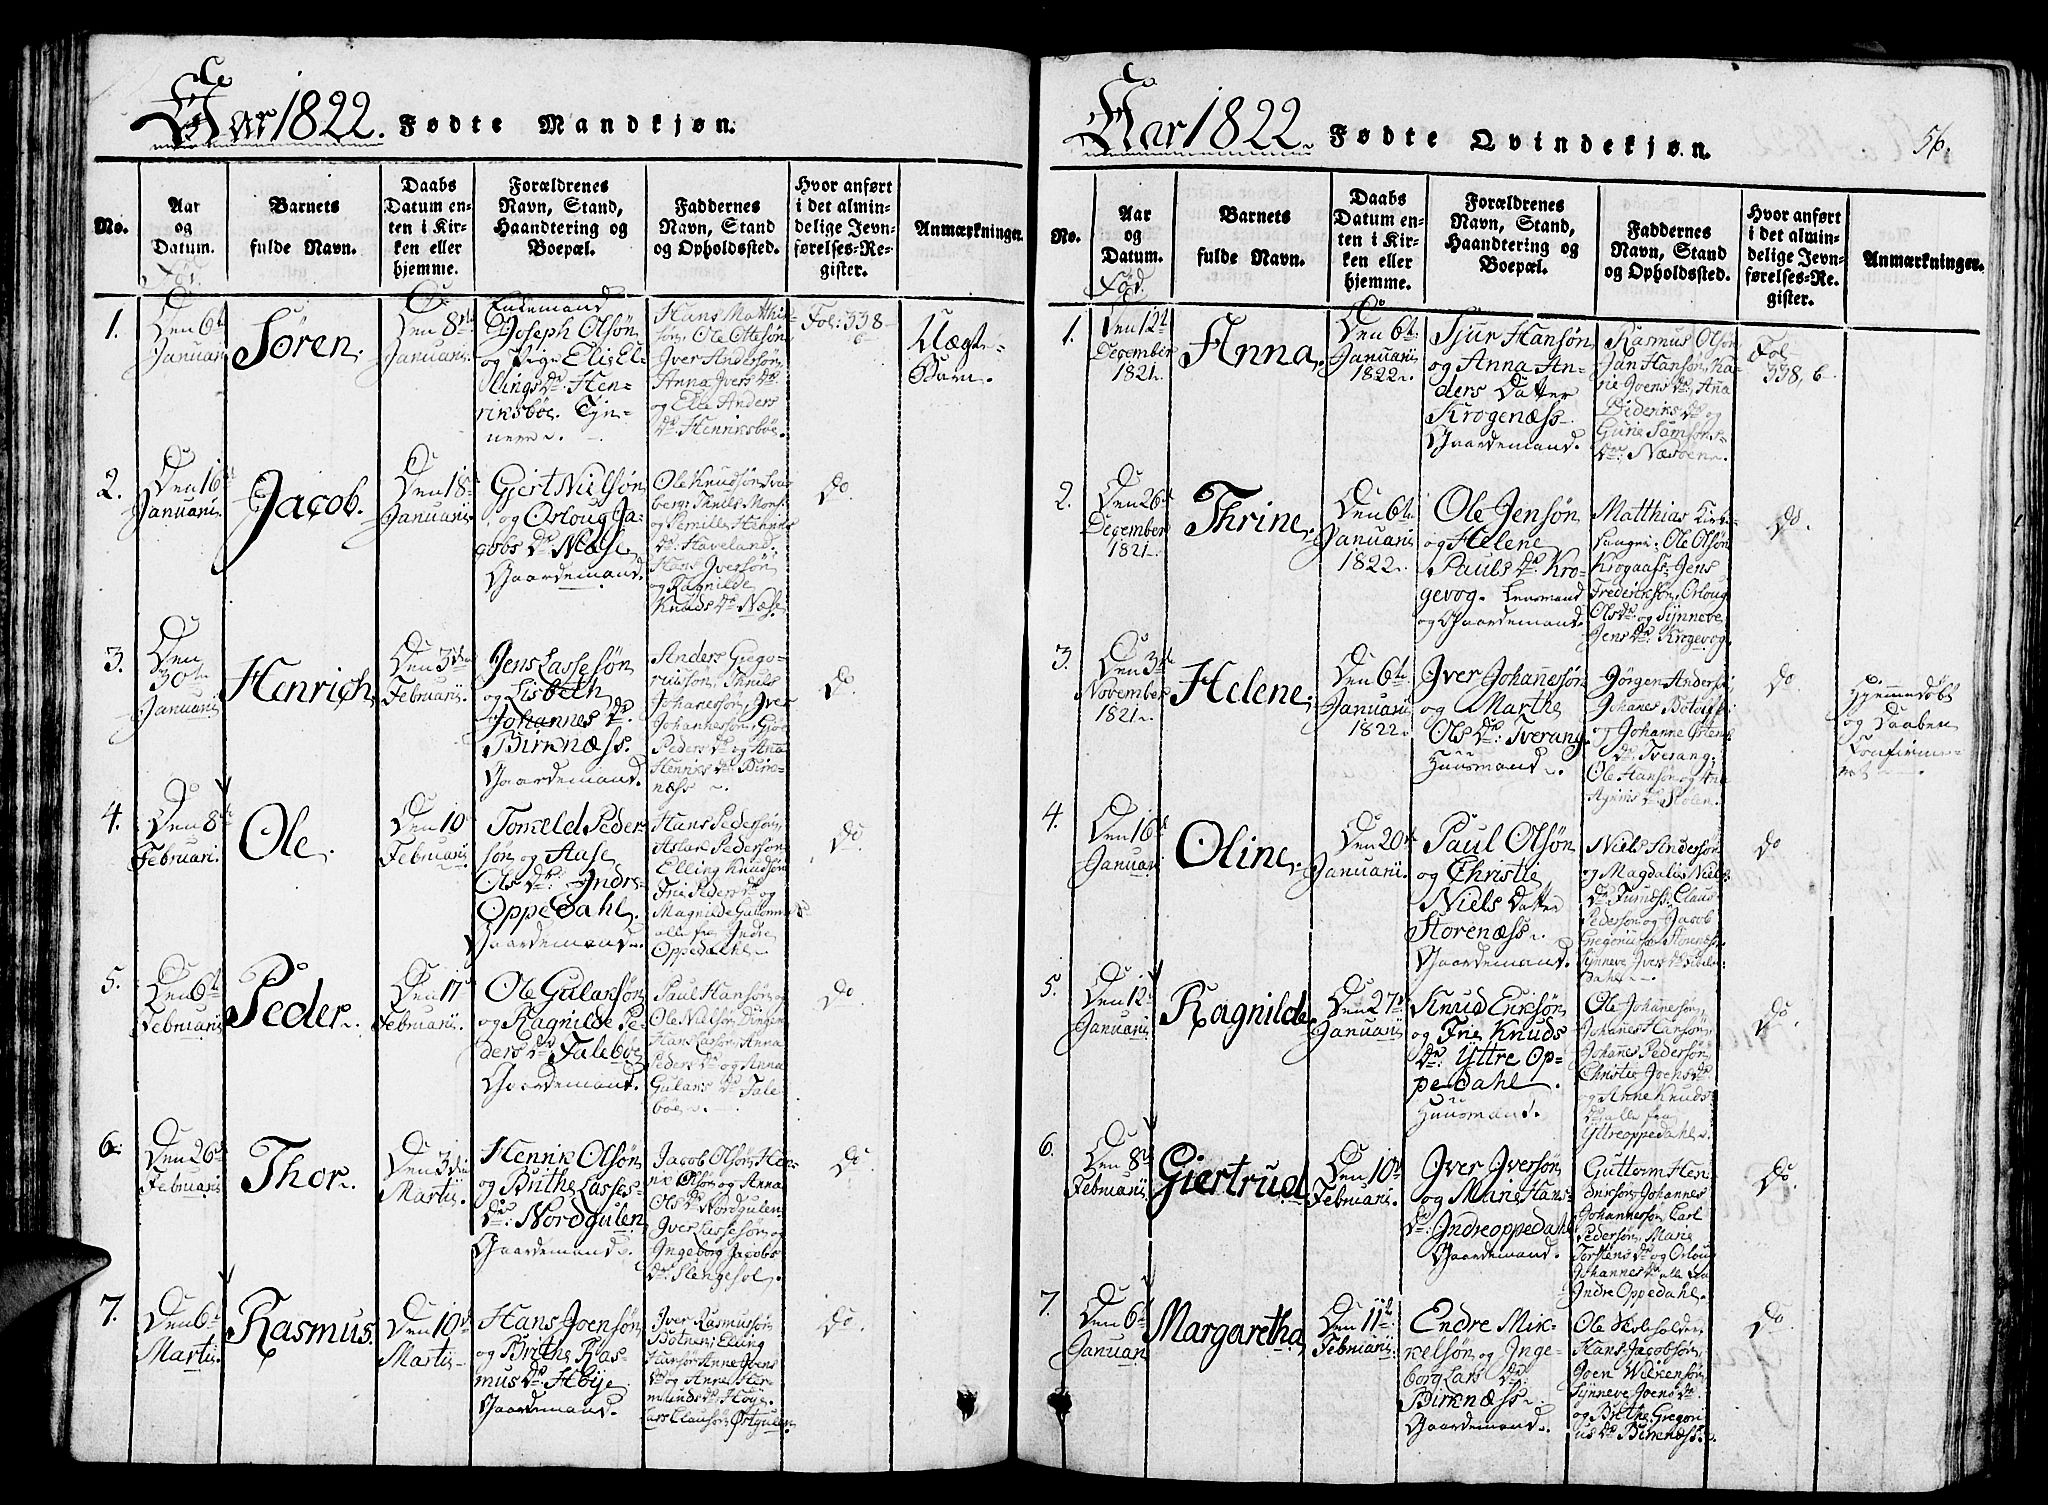 Aar 1822. Fødte Mandkjøn.
No.
Aar
og
Datum.
Fød.
Barnets
fulde Navn.
Daabs
Datum en-
ten i Kir-
ken eller
hjemme.
Forældrenes
Navn, Stand,
Haandtering og
Boepæl.
Faddernes
Navn, Stand
og Opholdssted.
Hvor anført
i det almin-
delige Jevn-
førelses-Re-
gister.
Anmærkninger.
1.
Den 6t
Januari
Søren.
Den 8de
Januarii
Enkemand
Joseph Olsøn
og Pige Elis El-
lings Dr. Hen-
riksbøe.
Hans Matthi-
søn, Ole Ottesøn
Jver Andersøn
Anna Jvers Dr.
og Else Anders
Dr. Henriksbøe.
Fol: 338
6
Uægte
Barn.
2.
Den 16de
Januarii.
Jacob.
Den 18de
Januarii
Gjert Nielsøn
og Orloug Ja-
cobs Dr. Næse
Gaardemand.
Ole Knudsøn
og Pernille Hannes
Dr. Haveland.
Hans Jversøn
og Ragnilde
Knuds Dr. Næse
do.
3.
Den
30te
Januarii
Henrich
Den 3die
Februarii.
Jens Lassesøn
og Lisbeth
Johannes Dr.
Birknæss.
Gaardemand.
Anders Grego-
riusson, Thruls
Johanesson, Jver
Johannesson,
Peders Dr. og Ana
Henriks Dr. Birk-
næss
do.
4.
Den 8de
Februari.
Ole.
Den 10de
Februarii
Tomeld Peder
søn og Aase
Ols Dr. Jndre
Oppedahl.
Gaardemand.
Hans Pedersøn,
Aslak Pedersøn
Elling Knudsøn
Frie Peders Dr. og
Magnilde Guttorms
alle fra Jndre
Oppedahl.
do.
5.
Den 6t
Februarii
Peder.
Den 17de
Februarii.
Ole Gulaksøn
og Ragnilde Pe-
ders Dr. Talebøe
Gaardemand.
Paul Hansøn og
Ole Nielsøn Dingen
Hans Larsøn, Anna
Peders Dr. og Anna
Gulaks Dr. Tale-
bøe.
do.
6.
Den 26de
Februarii.
Thor.
Den 3die
Martii.
Henrik Olsøn
og Brithe Lasses-
Dr. Nordgulen
Gaardemand.
Jacob Olsøn, Hen-
rik Olsøn og Anna
Ols Dr. Nordgulen
Jver Lassesøn og
Ingeborg Jacobs
Dr. Slengesol.
do.
7.
Den 6te
Martii.
Rasmus.
Den 10de
Martii
Hans Joensøn
og Brithe Ras-
mus Dr. Høije
Gaardemand.
Jver Rasmussøn
Botnen, Elling
Hansøn Anne Joens
Dr. og Anne
Dr. Høije.
Lars Clausøn Østgulen
do.
Aar 1822. Fødte Qvindekjøn.
56.
No.
Aar
og
Datum.
Fød.
Barnets
fulde Navn.
Daabs
Datum en-
ten i Kir-
ken eller
hjemme.
Forældrenes
Navn, Stand,
Haandtering og
Boepæl.
Faddernes
Navn, Stand
og Opholdssted.
Hvor anført
i det almin-
delige Jevn-
førelses-Re-
gister.
Anmærkninger.
1.
Den 12t
December
1821.
Anna.
Den 6t.
Januarii
1822.
Sjur Hansøn
og Anna An-
ders Datter
Krogenæss
Gaardemand.
Rasmus Olsøn
Jan Hansøn, Ka-
rie Joens Dr., Ana
Dideriks Dr. og
Gurie Samsøns
Dr. Næsbøen.
Fol-
338, 6
2.
Den 26de
December
1821.
Thrine.
Den 6t.
Januarii
1822.
Ole Jensøn
og Helene
Pauls Dr. Kro-
gevog. Lensmand
og Gaardemand.
Matthias Kirke-
sanger, Ole Olsøn
Krogaas, Jens
Frederiksøn, Orloug
Ols Dr. og Synneve
Jens Dr. Krogevog.
do.
3.
Den 3de
November
1821.
Helene.
Den 6t.
Januarii
1822.
Jver Johanesøn
og Marthe
Ols Dr. Tverang.
Huusmand.
Jørgen Anders
Johanes
og Johanne Østens
Dr. Tverang,
Ole Hansøn og Ana
Dr. Stolen.
do
Hjemmedøbt
og Daaben
Confirme-
ret
4.
Den 16de
Januari
Oline.
Den 20de
Januarii.
Paul Olsøn
og Christie
Niels Datter
Storenæss.
Gaardemand.
Niels Andersøn
og Magdalis Niels
Dr. Furnæss, Claus
Pedersøn og Jacob
Gregoriussøn Storenæss
Synneve Jvers Dr.
Dahl
do
5.
Den 12t
Januarii
Ragnilde
Den 27de
Januarii
Knud Eriksøn
og Frie Knuds
Dr. Yttre Op-
pedahl.
Huusmand.
Ole Johanesøn
Johanes Hansøn
Johanes Pedersøn
Christie Joens Dr.
og Anne Knuds
Dr. alle fra
Yttreoppedahl.
do.
6.
Den 8de
Februarii
Giertrud
Den 10de
Februarii.
Jver Jversøn
og Marie Hans-
Dr. Jndreoppedahl
Gaardemand.
Guttorm Hen-
driksøn, Johannes
Johannesøn, Carl
Pedersøn, Marie
Torstens Dr. og Orloug
Johannes Dr. alle fra
Jndre Oppedahl.
do.
7.
Den 6te
Januari
Margaretha
Den 11te
Februarii.
Endre Mik-
kelsøn og Jnge-
borg Lars Dr.
Birknæss
Gaardemand.
Ole Skoleholder
Hans Jacobsøn,
Joen Wilkensøn,
Synneve Joens Dr.
og Brithe Gregori
us Dr. Birknæss.
do